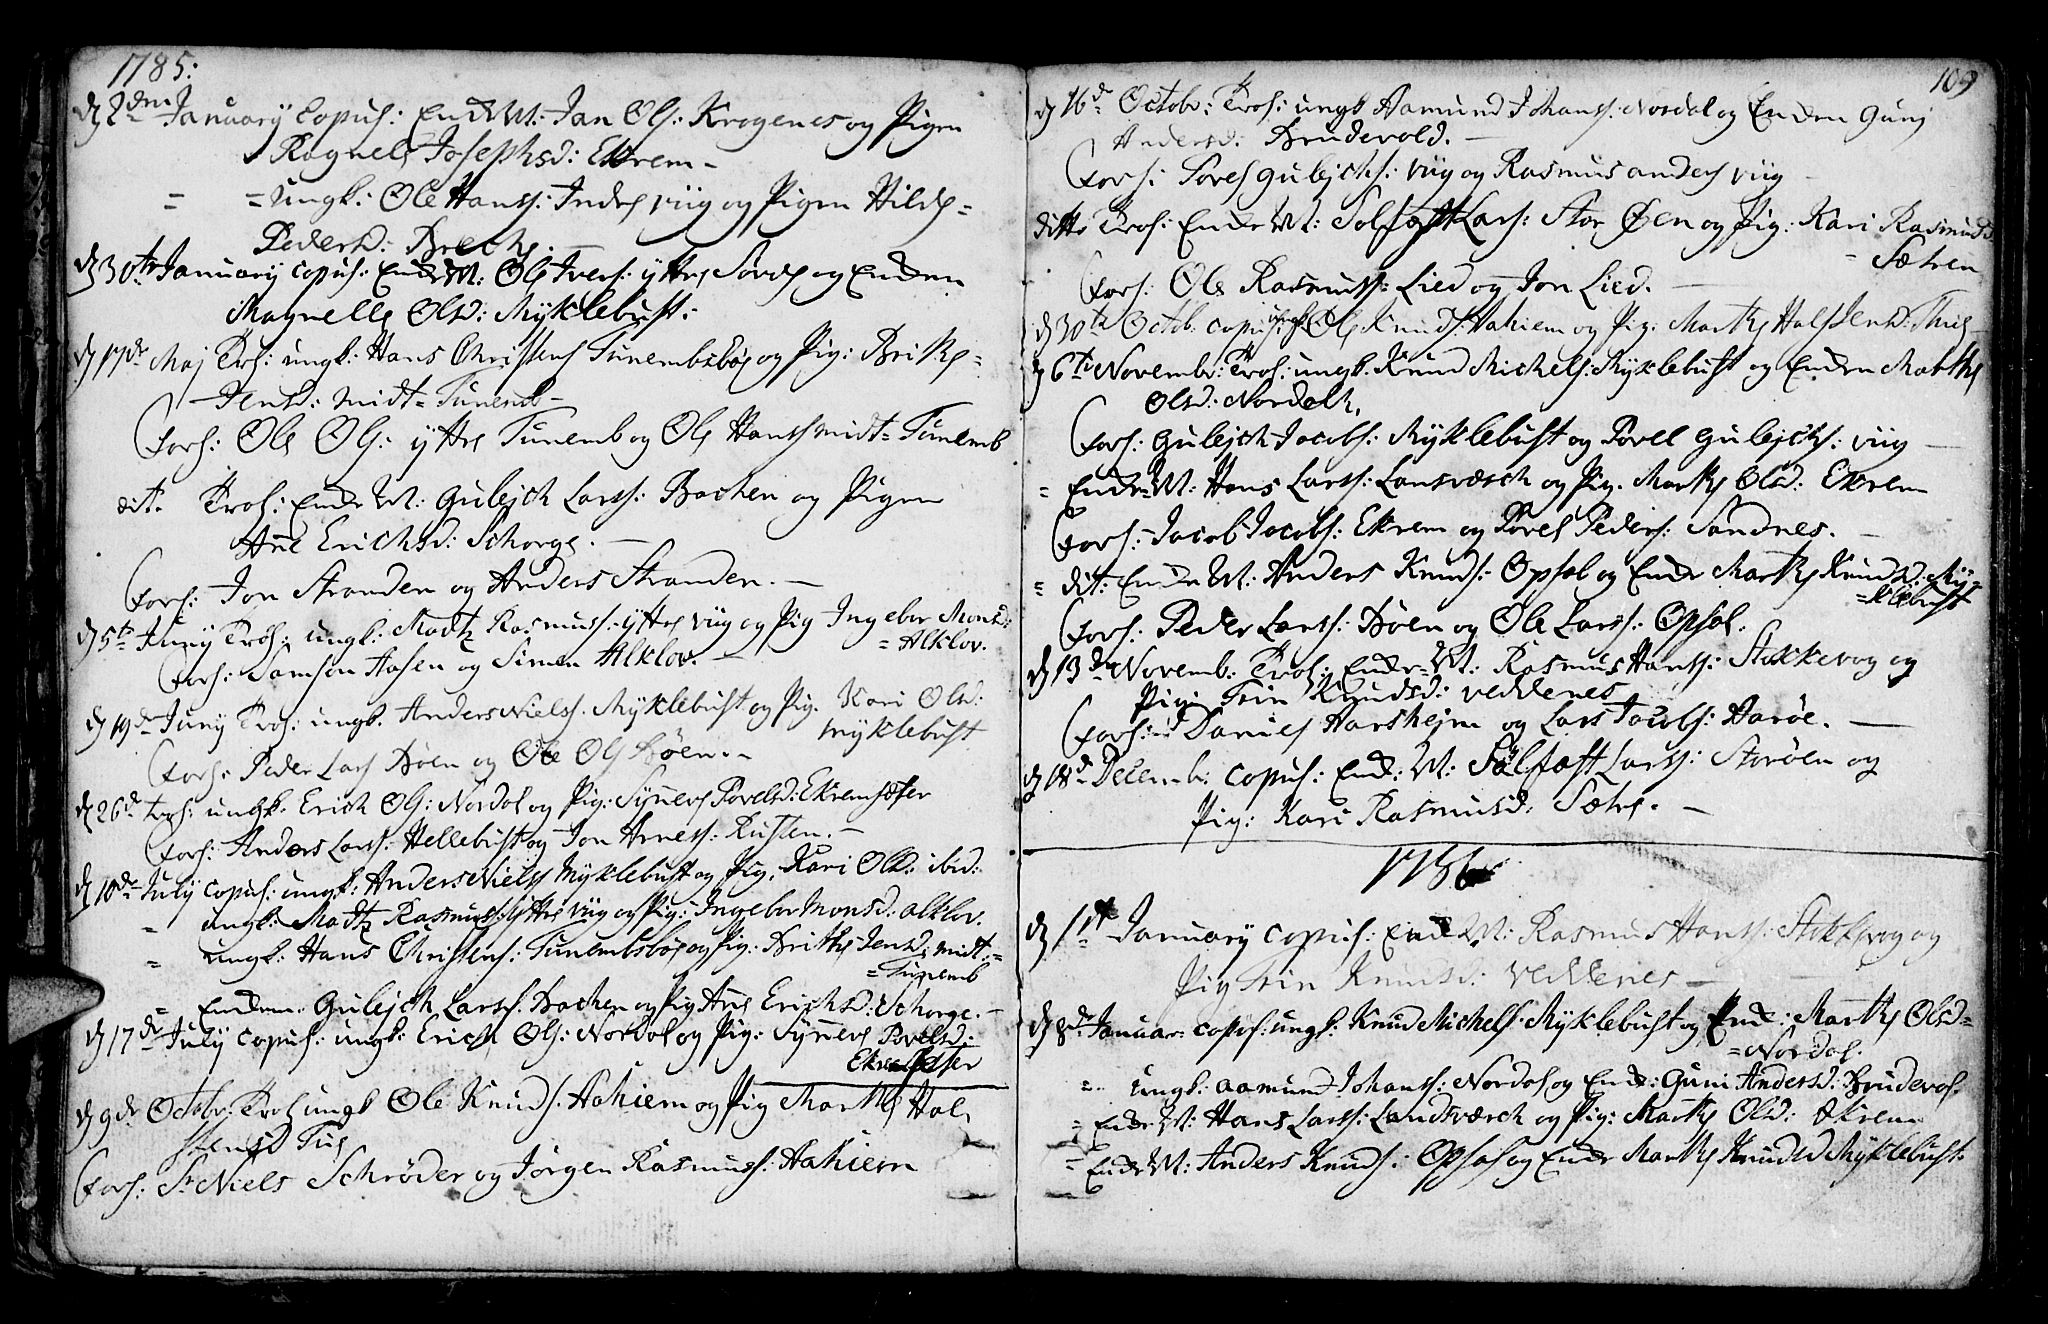 1785:
d 2den January Copul: EnckeM: Jan Ols: Krogenes og Pigen
Ragnele Josephsd: Ekrem –
= = ungk: Ole Hanss: Indre viig og Pigen Hilde=
Pedersd: Brech. —
d 30te January copul: EnckeM: Ole Ivers: yttre Søvig og Encken
Magnelle Olsd: Myklebust:
d 17de Maj Trol: ungk: Hans Christens Tunembsbøe og Pig: Brithe=
Jensd: midt=Tunemb –
Forl: Ole Ols: yttre Tunemb og Ole Hanss midt=Tunemb
dit. Trol: Encke M: Gulejch Larss: Bachen og Pigen
Ane Erichsd: Schorge. —
Forl: Jon Stranden og Anders Stranden. —
d 5te Juny Trol: ungk: Madtz Rasmuss: yttre viig og Pig Ingebor Monsd:
=Alklov.
Forl: Samson Aasen og Simen Alklov. —
d 19de Juny Trol: ungk. Anders Niels. Myklebust og Pig. Kari Olsd:
myklebust
Forl: Peder Lars Bøen og Ole Ols Bøen. –
d 26de trol: ungk. Erich Ols: Nordal og Pig: Synneve Povelsd: Ekremsæter
Forl: Anders Lars: Hellebust og Jon Arness: Rusten. —
d 10de July copul: ungk: Anders Niels Myklebust og Pig. Kari Olsd: ibid:
= ungk: Madtz Rasmuss: yttre viig og Pig: Ingebor Monsd: alklov.
= ungk: Hans Christens: Tunembsbøe og Pig: Brithe Jensd: midt=
=Tunemb
= Enckem: Gulejch Larss. Bachen og Pig Ane Erichsd: Schorge. –
d 17de July copul: ungk: Erich Ols: Nordal og Pig: Synneve Povelsd:
Ekremsæter
d 9de Octobr: Trol ungk Ole Knuds. Aahiem og Pig Marthe Hal=
stensd Tue
Forl: Sr Niels Schrøder og Jørgen Rasmuss: Aahiem
109
d 16de Octobr: Trol: ungk Aamund Johanss: Nordal og Encken Guni
Andersd: Brudevold. –
Forl: Povel Gulejchs: viig og Rasmus anders viig –
ditto Trol: Encke M: Solfast Lars: Stor Øen og Pig: Kari Rasmusd
= Sætren
Forl: Ole Rasmuss: Lied og Jon Lied. —
d 30te Octob: copul: ungk Ole Knuds: Aahiem og Pig. Marthe Halstensd: Thue –
d 6te Novembr: Trol: ungk. Knud Michels: Myklebust og Encken Marthe
Olsd: Nordahl,
Forl: Gulejch Jacobs: Myklebust og Povel Gulejchs: viig —
= EnckeM: Hans Larss: Lansværch og Pig. Marthe Olsd: Ekrem
Forl: Jacob Jacobs: Ekrem og Povel Peders: Sandnes. —
= dit: Encke M: Anders Knuds: Opsal og Encke Marthe Knudsd: My=
=klebust
Forl: Peder Larss: Bøen og Ole Larss: Opsal.
d 13de Novemb: Trol: Encke M: Rasmus Hanss: Stokkevog og
Pig: Trin Knudsd: veddenes
Forl: Daniel Harshejm og Lars Jacobs: Harøe. —
d 18de Decemb: copul: Enck: M: Solfast Larss: Storøen og
Pig: Kari Rasmusd: Sætre. —
1786
d 1ste January copul: Encke M: Rasmus Hanss: Stokkevog og
Pig Trin Knudsd: veddenes —
d 8de Januar: copul: ungk: Knud Michels: Myklebust og Enck: Marthe Olsd=
=Nordal.
= ungk: aamund Johanss: Nordal og Enck: Guni Andersd: Brudevol.
= Encke M: Hans Larss: Landværch og Pig: Marthe Olsd: Ekrem
= Encke M: Anders Knuds: Opsal og Encke Marthe Knudsd Myklebust.